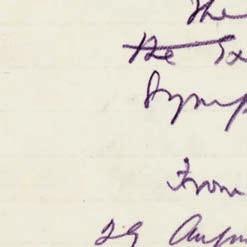 The
the Ex
Symp
From
29 Augu